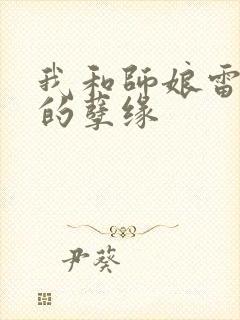 我和師娘雷
的孽缘
尹葵